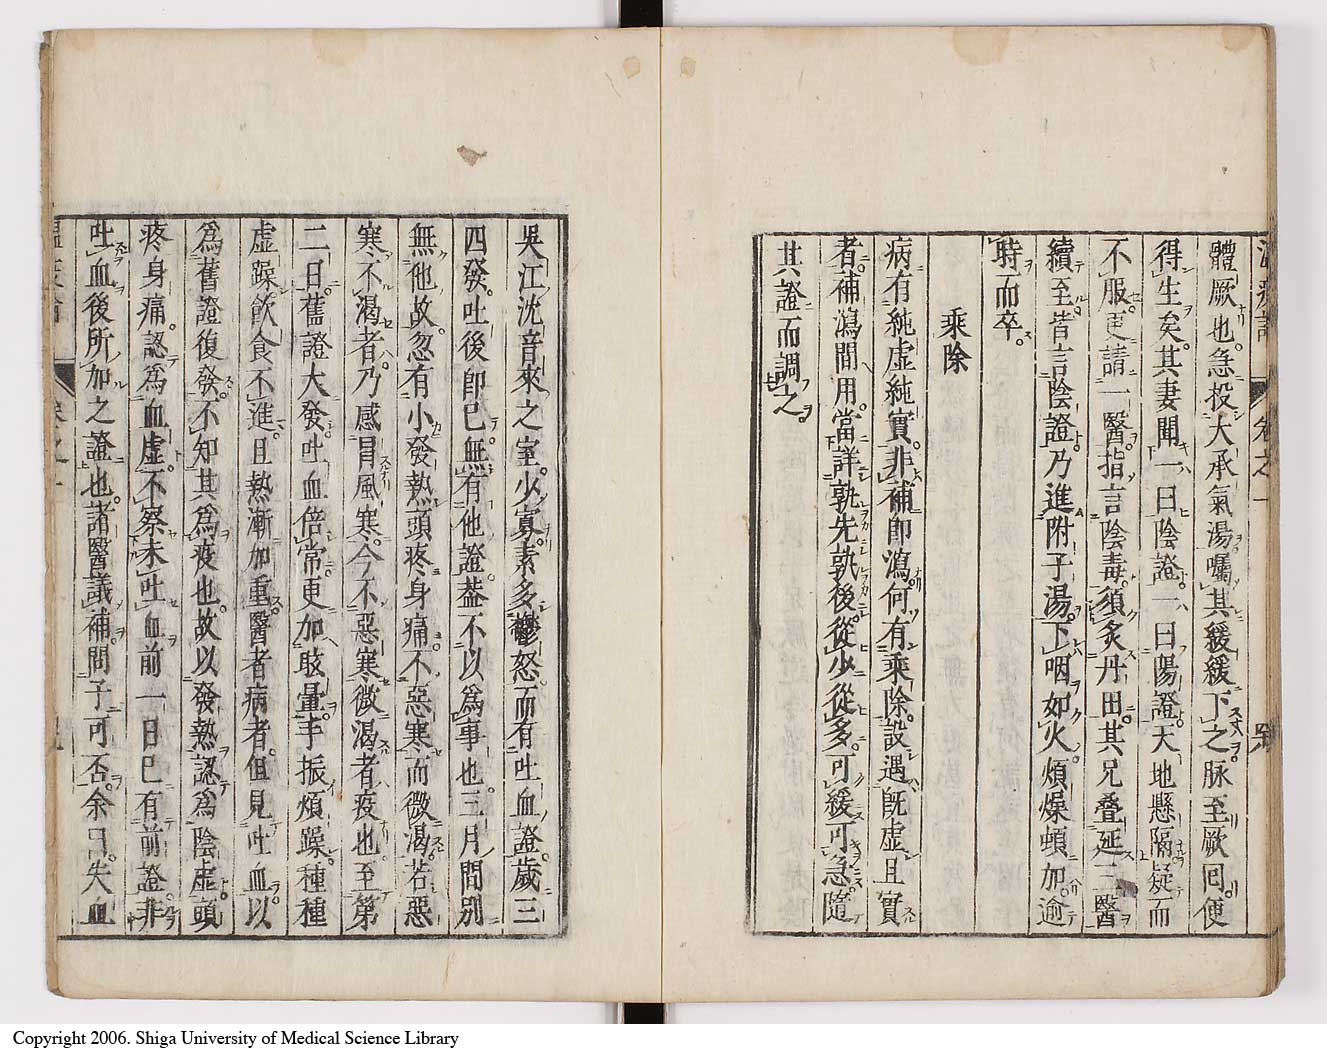 體厥也急投大承氣湯囑其緩緩下之脉至厥囘便
得生矣其妻聞一曰陰證一曰陽證天地懸隔疑而
不服更請一醫指言陰毒須炙丹田其兄叠延三醫
續至皆言陰證乃進附子湯下咽如火煩燥頓加逾
時而卒
乘除
病有純虛純實非補即瀉何有乘除設遇既虛且實
者補瀉間用當詳孰先孰後從少從多可緩可急隨
其證而調之
吳江沈音來之室少寡素多鬱怒而有吐血證歲三
四發吐後即已無有他證葢不以爲事也三月間別
無他故忽有小發熱頭疼身痛不惡寒而微渴若惡
寒不渴者乃感冒風寒今不惡寒微渴者疫也至第
二日舊證大發吐血倍常更加眩暈手振煩躁種種
虛躁飲食不進且熱漸加重醫者病者但見吐血以
爲舊證復發不知其爲疫也故以發熱認爲陰虛頭
疼身痛認爲血虛不察未吐血前一日已有前證非
吐血後所加之證也諸醫議補問予可否余曰失血
Copyright 2006. Shiga University of Medical Science Library